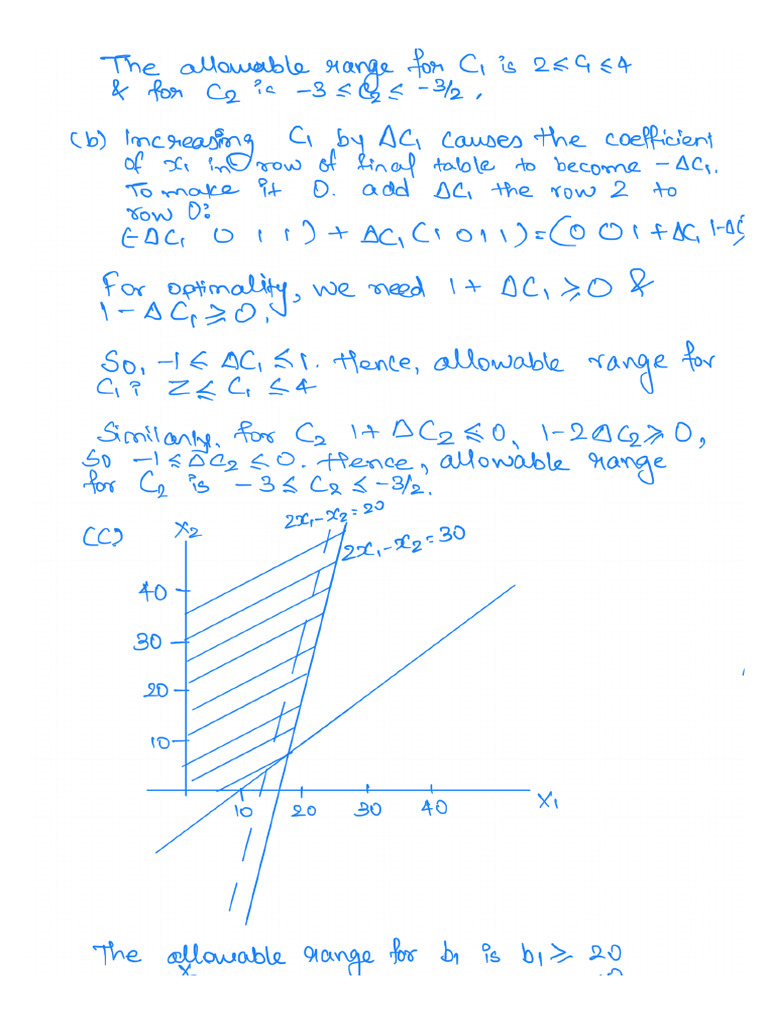 The allowable range for C₁ is 2 ≤ C₁ ≤ 4
& for C₂ is -3 ≤ C₂ ≤ -3/2.
(b) Increasing C₁ by ΔC₁ causes the coefficient
of x₁ in 0 row of final table to become -ΔC₁.
To make it 0. add ΔC₁ the row 2 to
row 0:
(-ΔC₁ 0 1 1) + ΔC₁ (1 0 1 1) = (0 0 1 + ΔC₁ 1-ΔC
For optimality, we need 1 + ΔC₁ ≥ 0 &
1 - ΔC₁ ≥ 0.
So, -1 ≤ ΔC₁ ≤ 1. Hence, allowable range for
C₁ : 2 ≤ C₁ ≤ 4
Similarly, for C₂ 1 + ΔC₂ ≤ 0, 1-2ΔC₂ ≥ 0,
So -1 ≤ ΔC₂ ≤ 0. Hence, allowable range
for C₂ is -3 ≤ C₂ ≤ -3/2.
(C)
X₂
2x₁-x₂=20
2x₁-x₂=30
40
30
20
10
10 20 30 40
X₁
The allowable range for b₁ is b₁ ≥ 20